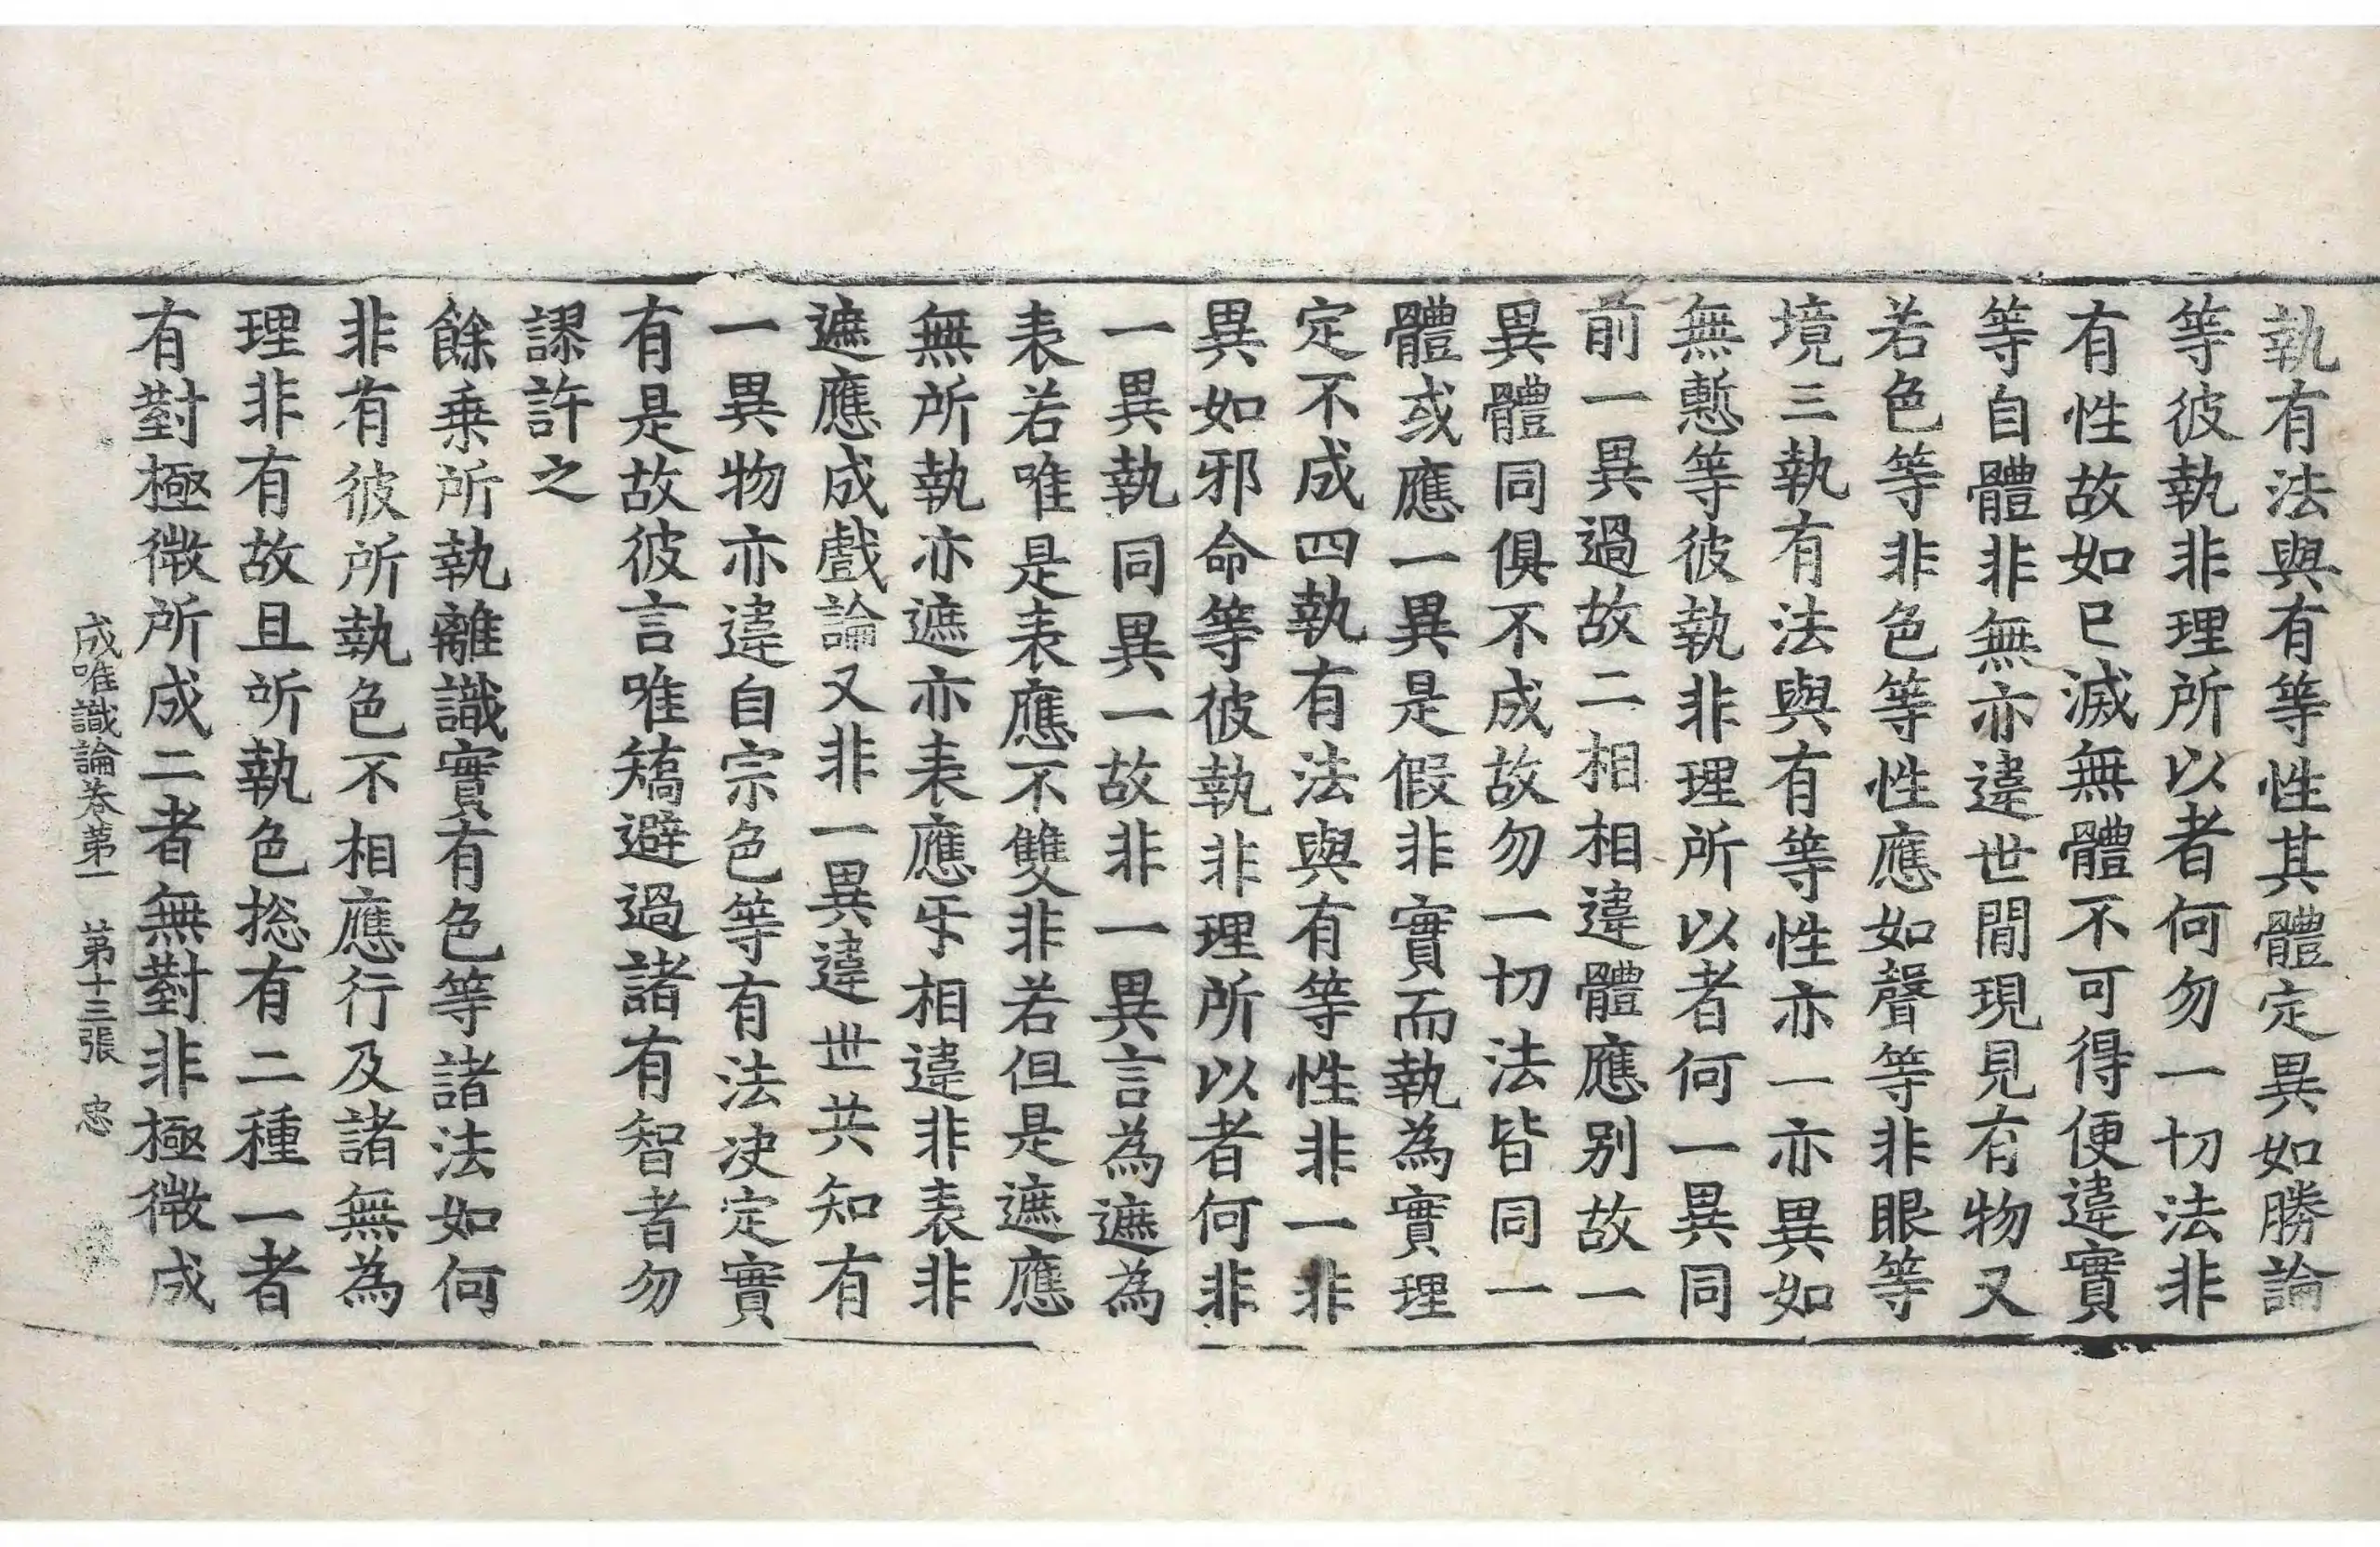 執有法與有等性其體定異如勝論
等彼執非理所以者何勿一切法非
有性故如已滅無體不可得便違實
等自體非無亦違世間現見有物又
若色等非色等性應如聲等非眼等
境三執有法與有等性亦一亦異如
無慙等彼執非理所以者何一異同
前一異過故二相相違體應別故一
異體同俱不成故勿一切法皆同一
體或應一異是假非實而執為實理
定不成四執有法與有等性非一非
異如邪命等彼執非理所以者何非
一異執同異一故非一異言為遮為
表若唯是表應不雙非若但是遮應
無所執亦遮亦表應乐相違非表非
遮應成戲論又非一異違世共知有
一異物亦違自宗色等有法決定實
有是故彼言唯矯避過諸有智者勿
謬許之
餘乘所執離識實有色等諸法如何
非有彼所執色不相應行及諸無為
理非有故且所執色捴有二種一者
有對極微所成二者無對非極微成
成唯識論卷苐一 苐十三張 忠